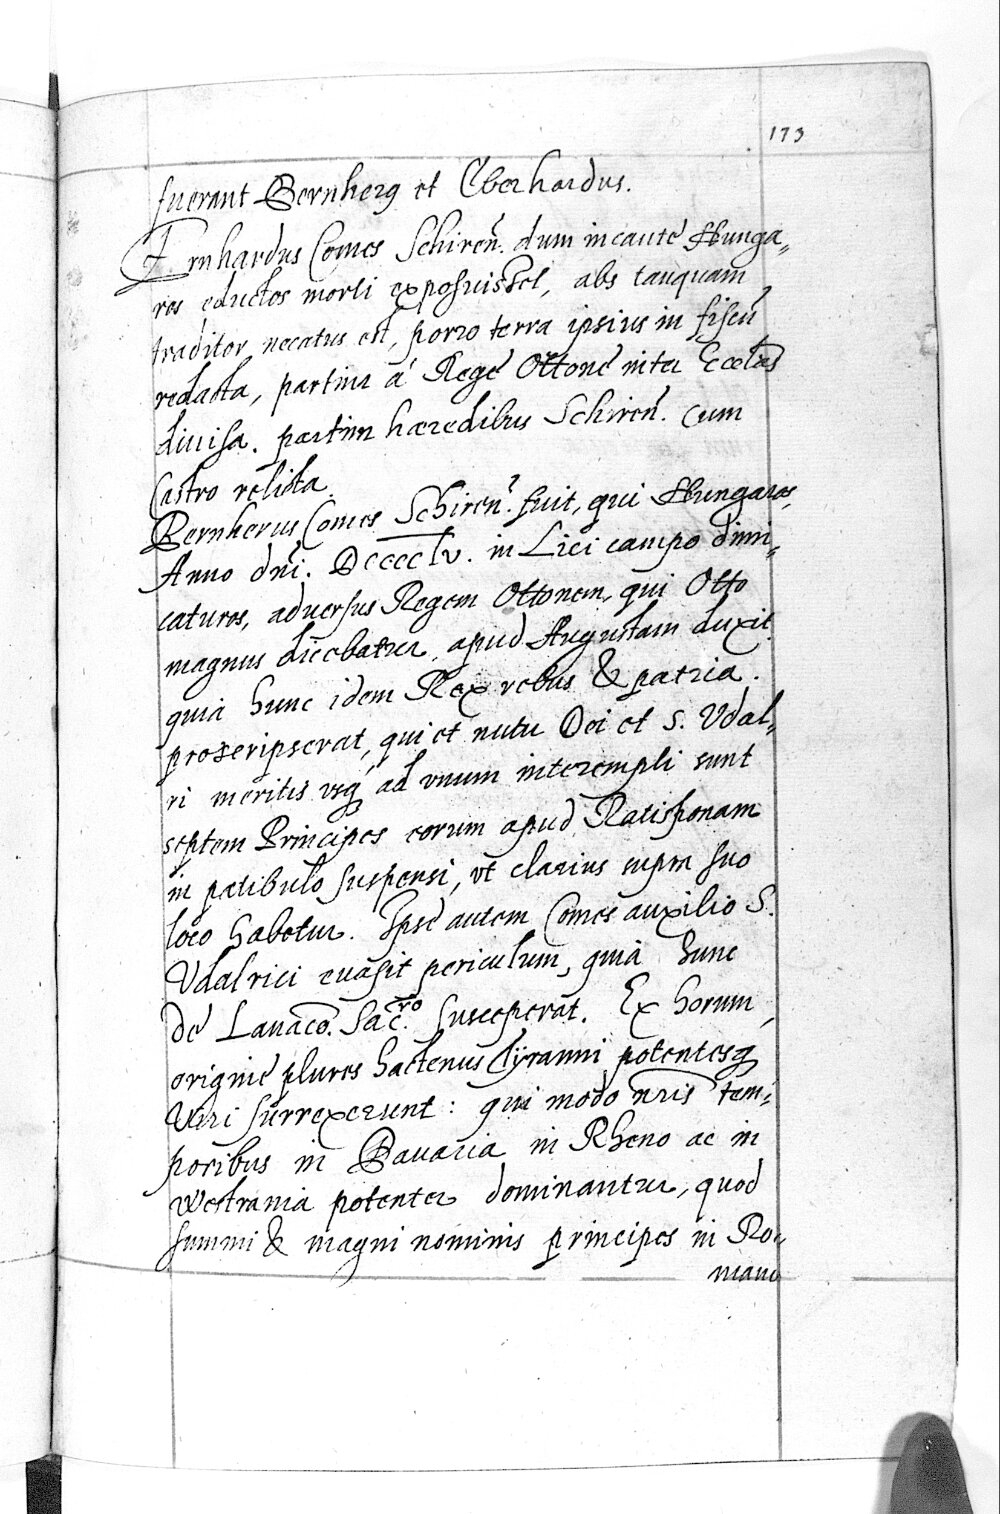 173
fuerant Bernherg et Eberhardus.
Ernhardus Comes Schiren̄. dum incauté Hunga„
ros eductos morti exposuisset, abs tanquam
traditor necatus est, porro terra ipsius in fiscū
redacta, partim á Rege Ottone inter Eccl̄as
diuisa. partim hæredibus Schiren̄. cum
Castro relicta.
Bernherus Comes Schiren̄. fuit, qui Hungaros,
Anno dn̄i. DCCCCLV. in Lici campo dimi„
caturos, aduersus Regem Ottonem, qui Otto
magnus dicebatur, apud Augustam duxit.
quia hunc idem Rex rebus & patria.
proscripserat, qui et nutu Dei et S. Vdal„
ri meritis vsq́ ad vnum interempti sunt
septem Principes eorum apud Ratisponam
in patibulo suspensi, vt clarius supra suo
loco habetur. Ipse autem Comes auxilio S.
Vdalrici euasit periculum, quia hunc
de Lauaco. Sac.ro susceperat. Ex horum,
origine plures hactenus Tÿranni potentesq́
Viri surrexerunt: qui modo nr̄is tem„
poribus in Bauaria in Rheno ac in
westrania potenter dominantur, quod
summi & magni nominis principes in Ro„
mano